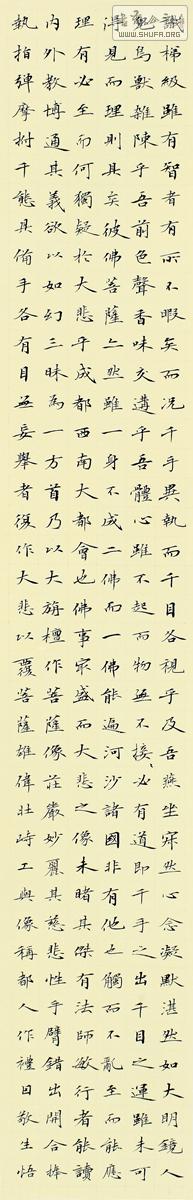 識梯級雖有智者有所不暇矣而况千手異執而千目各視乎及吾燕坐寂然心念凝默湛然如大明鏡
鳥獸雜陳乎吾前色聲香味交遘乎吾體心雖不起而物無不接、必有道即千手之出千目之運雖未可
得見而理則具矣彼佛菩薩亦然雖一身不成二佛而一佛能遍河沙諸國非有他也觸而不亂至而能應
理有必至而何獨疑於大悲乎成都西南大都會也佛事最盛而大悲之像未睹其傑有法師敏行者能讀
內外教博通其義欲以如幻三昧為一方首乃以大旃檀作菩薩像莊嚴妙麗其慈悲性手臂錯出開合捧
執指彈摩拊千態具備手各有目無妄舉者復作大悲以覆菩薩雄偉壯峙工與像稱都人作禮因敬生悟
WWW.SHUFA.ORG